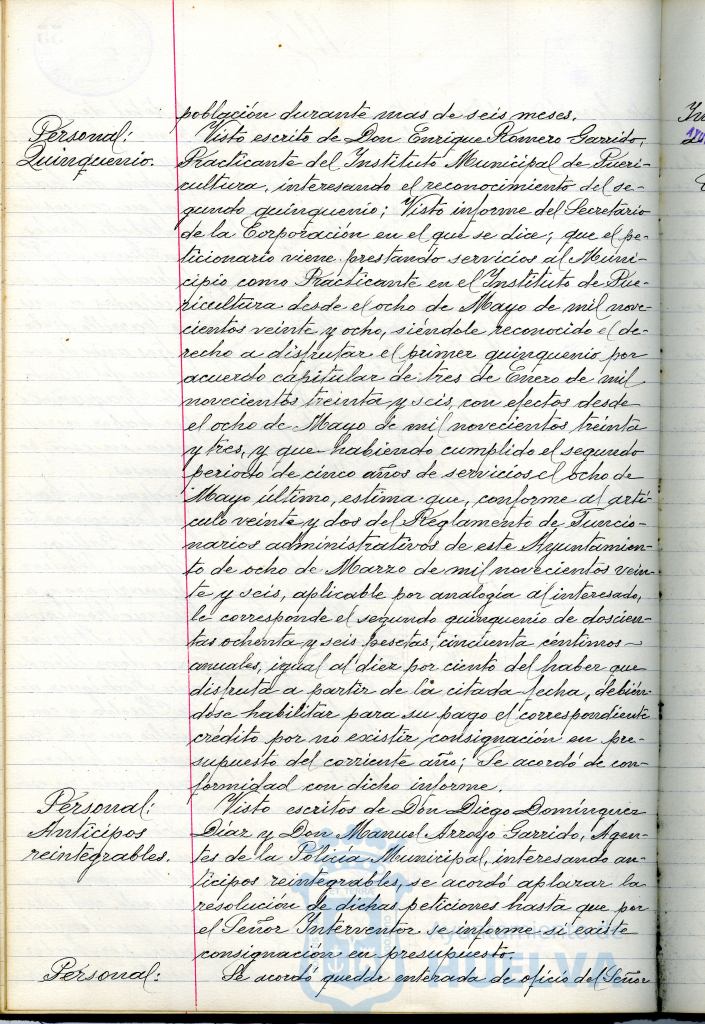 población durante mas de seis meses.
Personal:
Quinquenio.
Visto escrito de Don Enrique Romero Garrido,
Practicante del Instituto Municipal de Pueri-
cultura, interesando el reconocimiento del se-
gundo quinquenio; Visto informe del Secretario
de la Corporación en el que se dice; que el pe-
ticionario viene prestando servicios al Muni-
cipio como Practicante en el Instituto de Pue-
ricultura desde el ocho de Mayo de mil nove-
cientos veinte y ocho, siéndole reconocido el de-
recho a disfrutar el primer quinquenio por
acuerdo capitular de tres de Enero de mil
novecientos treinta y seis, con efectos desde
el ocho de Mayo de mil novecientos treinta
y tres, y que habiendo cumplido el segundo
periodo de cinco años de servicios el ocho de
Mayo último, estima que, conforme al artí-
culo veinte y dos del Reglamento de Funcio-
narios administrativos de este Ayuntamien-
to de ocho de Marzo de mil novecientos vein-
te y seis, aplicable por analogía al interesado,
le corresponde el segundo quinquenio de doscien-
tas ochenta y seis pesetas, cincuenta céntimos
anuales, igual al diez por ciento del haber que
disfruta a partir de la citada fecha, debién-
dose habilitar para su pago el correspondiente
crédito por no existir consignación en pre-
supuesto del corriente año; Se acordó de con-
formidad con dicho informe.
Personal:
Anticipos
reintegrables.
Visto escritos de Don Diego Domínguez
Díaz y Don Manuel Arroyo Garrido, Agen-
tes de la Policía Municipal, interesando an-
ticipos reintegrables, se acordó aplazar la
resolución de dichas peticiones hasta que por
el Señor Interventor se informe si existe
consignación en presupuesto.
Personal:
Se acordó quedde enterada de oficio del Señor
Ayuntamiento de
HUELVA